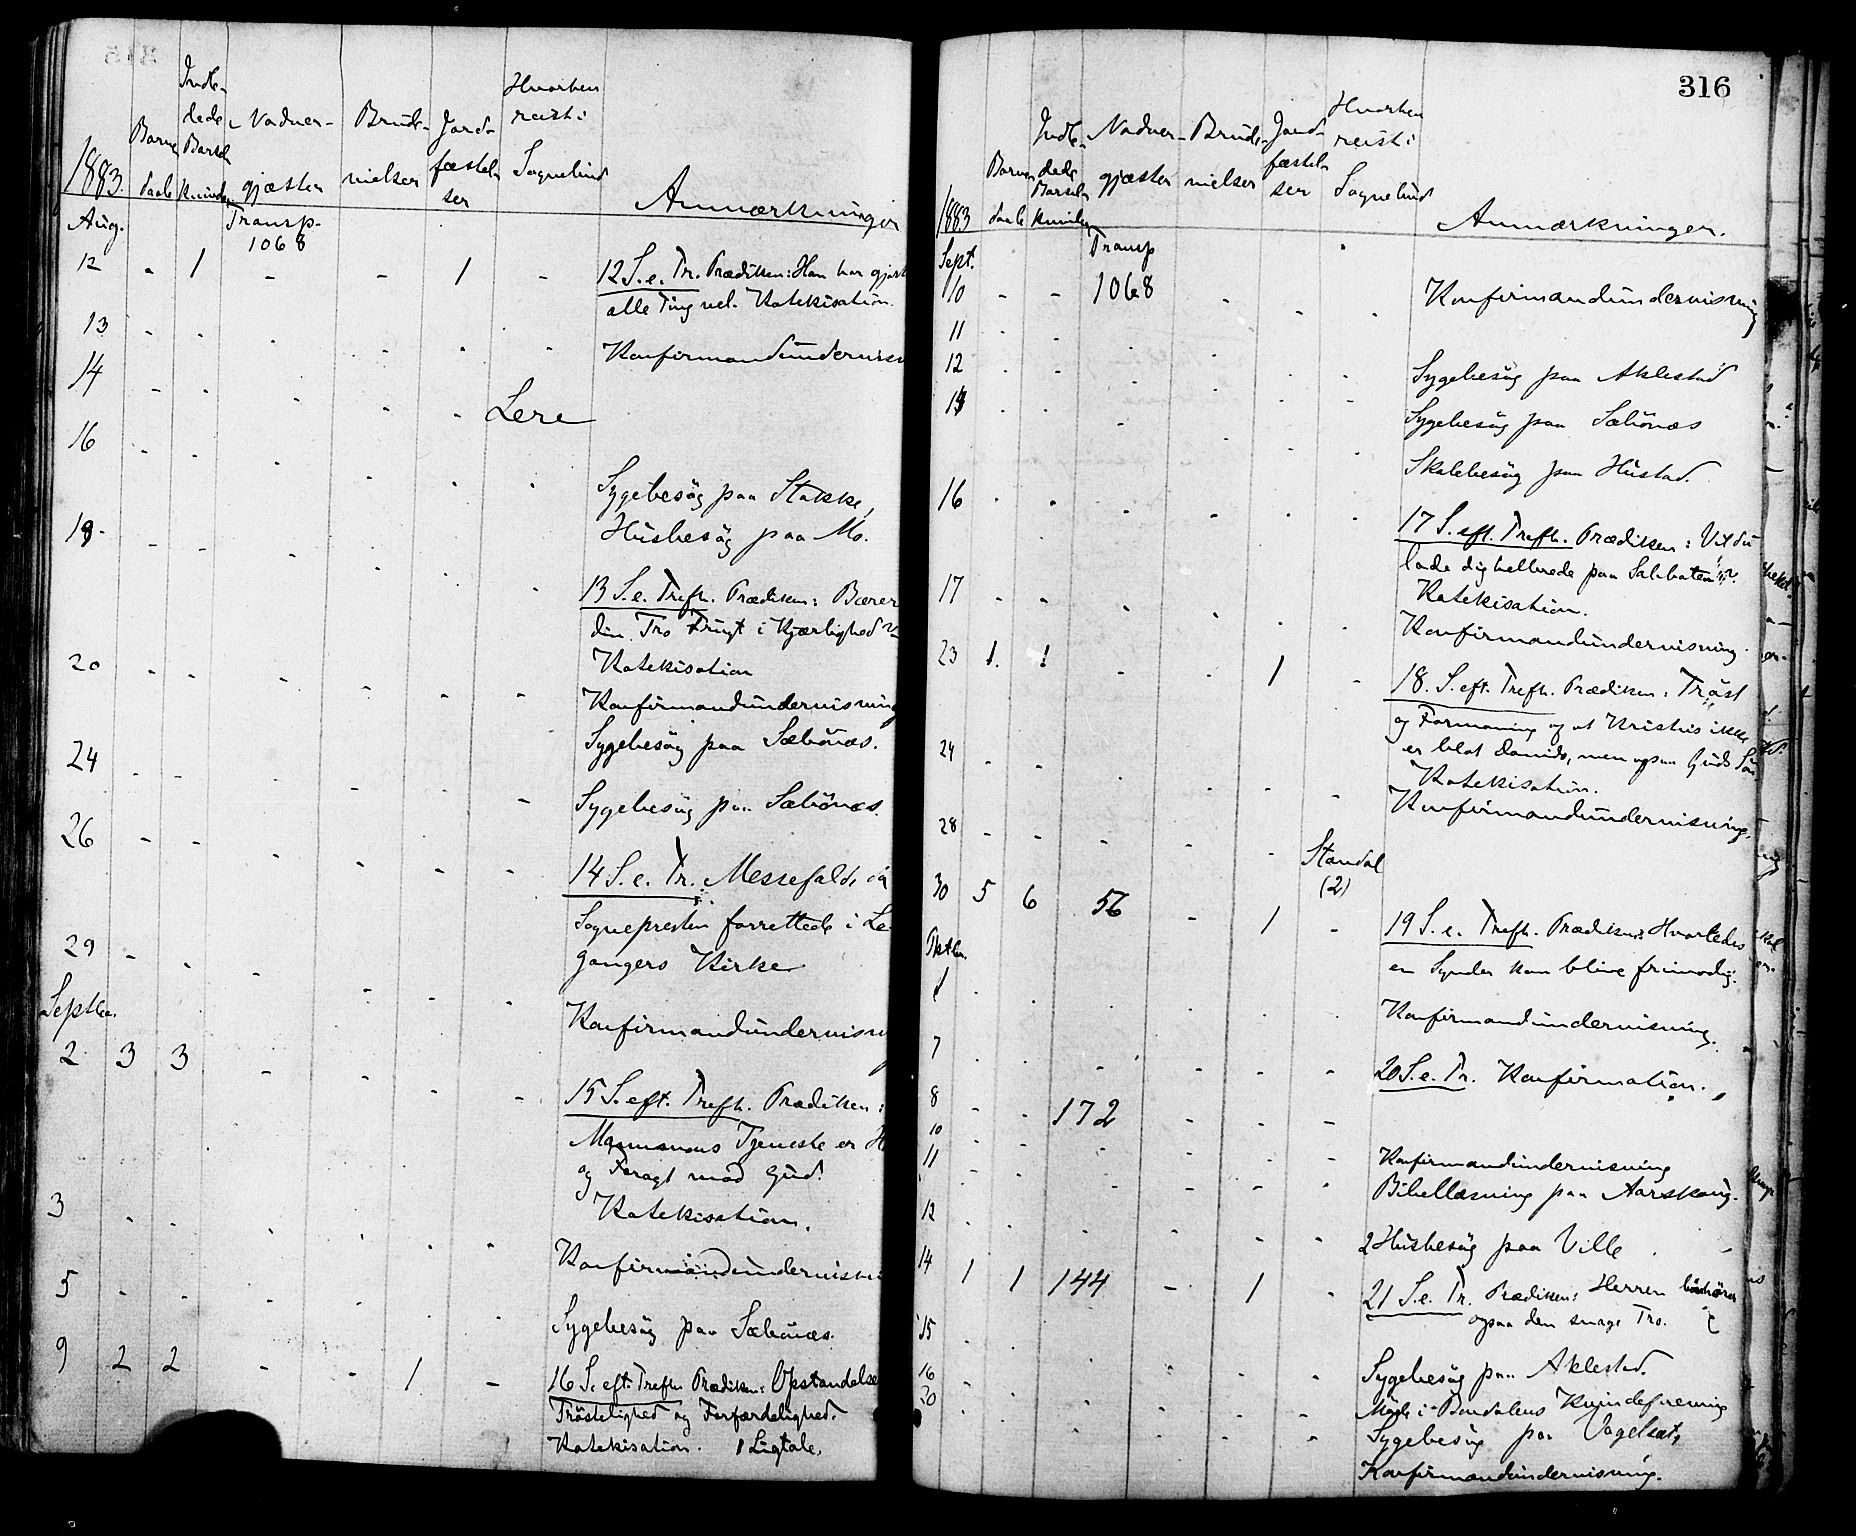 1883.
Barne daab
Indledede Barselkvinder
Nadver-gjæster
Brude-vielser
Jordfæstelser
Hvorhen reist i Sognebud
Anmærkninger
Aug.
Transp. 1068
12 - 1 - - 1 - 12 S. e. Tr. Prædiken: Han har gjort
alle Ting vel. Katekisation.
13 Konfirmandundervisn
14 Lere
16 Sygebesög paa Stokke,
Husbesög paa Mo.
19 13 S. e. Trefh. Prædiken: Bærer
din Tro Frugt i Kjærlighed
Katekisation
20 Konfirmandundervisning
Sygebesög paa Sæbönæs.
24 Sygebesög paa Sæbönæs.
26 14 S. e. Tr. Messefald, da
Sognepresten forrettede i Le-
gangers Kirke
29 Konfirmandundervisn
Septbr.
2 3 3 15 S. eft. Trefh. Prædiken:
Mammons Tjeneste er H
og Foragt mod Gud.
Katekisation.
3 Konfirmandundervisni
5 Sygebesög paa Sæbönæs.
9 2 2 - - 1 - 16 S. eft. Trefh. Prædiken: Opstandelse
Tröstelighed og Forfærdelighed.
Katekisation. 1 Ligtale.
316
1883
Barne daab
Indledede Barselkvinder
Nadver-gjæster
Brude-vielser
Jordfæstelser
Hvorhen reist i Sognebud
Anmærkninger.
Sept.
Transp
10 - - 1068 Konfirmandundervisning
11
12 Sygebesög paa Aklestad
Sygebesög paa Sæbönæs
Skolebesög paa Hustad.
16 17 S. eft. Trefh. Prædiken: Vil du
lade dig hellrede paa Sabbaten?
Katekisation.
17 Konfirmandundervisning.
23 1. 1 1 18. S. eft. Trefh. Prædiken: Tröst
og Formaning og at Kristus ikke
er blot Davids, men ogsaa Guds Sön
Katekisation.
24 Konfirmandundervisning.
28 Standal
(2)
30 5 6 56 - 1 - 19 S. e. Trefh. Prædiken: Hvorledes
en Synder kan blive frimodig.
Oktbr.
1 Konfirmandundervisning.
7 20 S. e. Tr. Konfirmation.
8 - - 172
10 Konfirmandundervisning
11 Bibellæsning paa Aarskoug.
12 2 Husbesög paa Ville
14 1 1 144 - 1 - 21 S. e. Tr. Prædiken: Herren bönhörer
ogsaa den svage Tro.
15 Sygebesög paa Aklestad.
16 Möde i Bondalens Kvindeforening
20 Sygebesög paa Vogelsæt,
Konfirmandundervisning.